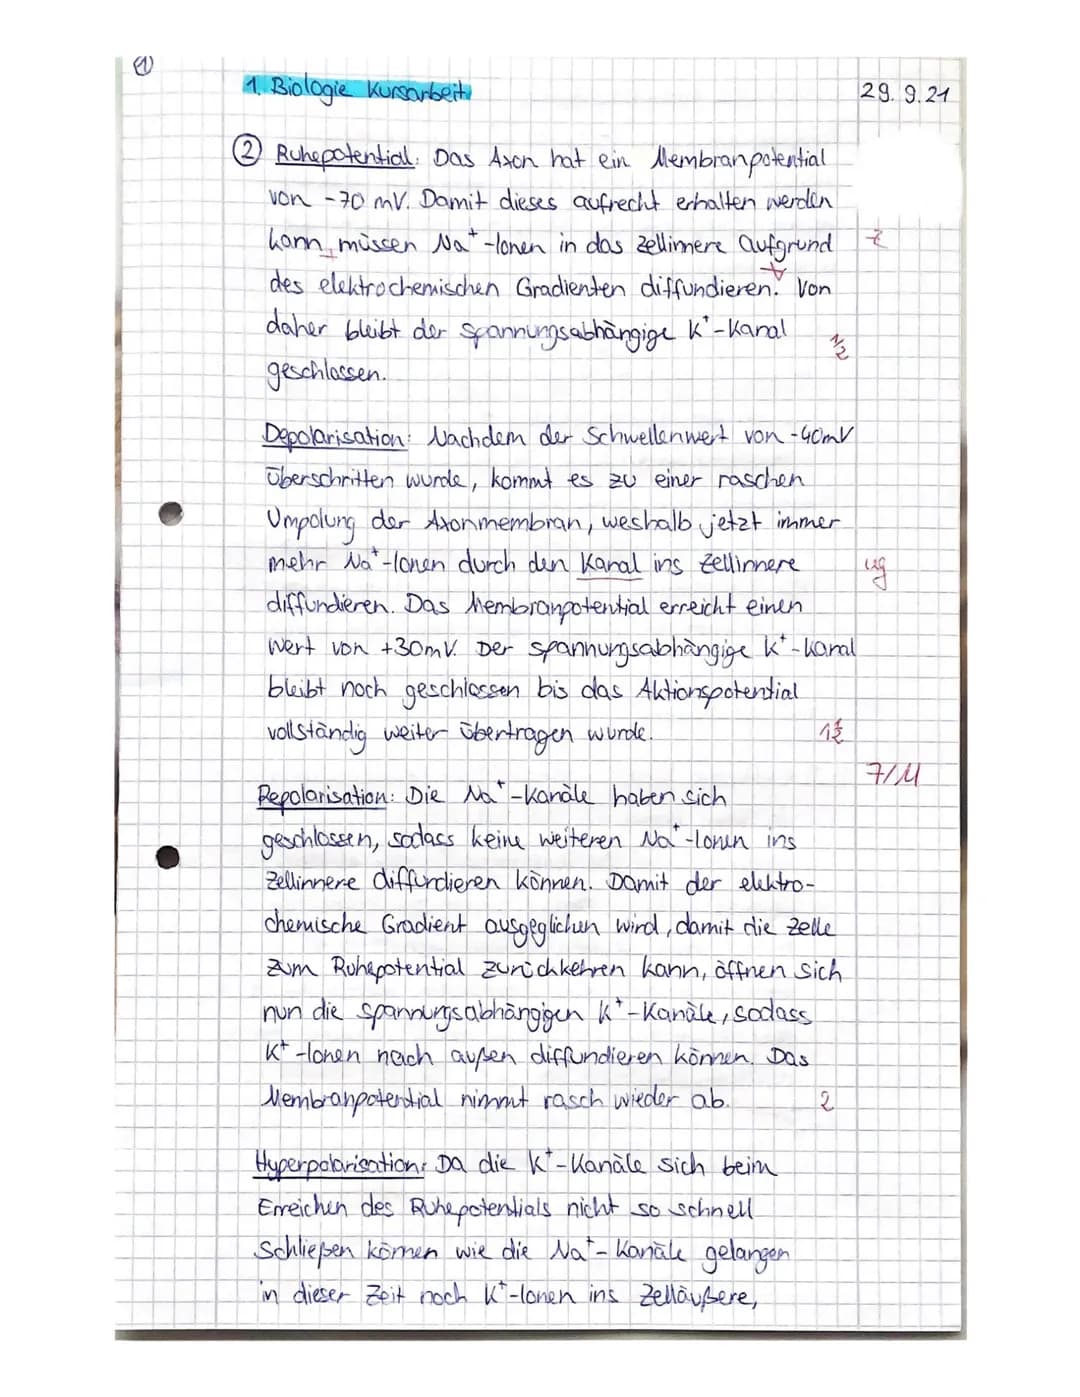 ①
1. Biologie Kursarbeit
29.9.21
② Ruhepotential: Das Axon hat ein Membranpotential
von -70 mV. Damit dieses aufrecht erhalten werden
kann, müssen Na⁺-Ionen in das Zellinnere aufgrund
des elektrochemischen Gradienten diffundieren. Von
daher bleibt der spannungsabhängige K⁺-Kanal
½
geschlossen.
Depolarisation: Nachdem der Schwellenwert von -40mV
überschritten wurde, kommt es zu einer raschen
Umpolung der Axonmembran, weshalb jetzt immer
mehr Na⁺-Ionen durch den Kanal ins Zellinnere
ug
diffundieren. Das Membranpotential erreicht einen
Wert von +30mV. Der spannungsabhängige K⁺-Kanal
bleibt noch geschlossen bis das Aktionspotential
vollständig weiter übertragen wurde.
1½
7/11
Repolarisation: Die Na⁺-Kanäle haben sich
geschlossen, sodass keine weiteren Na⁺-Ionen ins
Zellinnere diffundieren können. Damit der elektro-
chemische Gradient ausgeglichen wird, damit die Zelle
zum Ruhepotential zurückkehren kann, öffnen sich
nun die spannungsabhängigen K⁺-Kanäle, sodass
K⁺-Ionen nach außen diffundieren können. Das
Membranpotential nimmt rasch wieder ab.
2
Hyperpolarisation: Da die K⁺-Kanäle sich beim
Erreichen des Ruhepotentials nicht so schnell
schließen können wie die Na⁺-Kanäle gelangen
in dieser Zeit noch K⁺-Ionen ins Zelläußere,